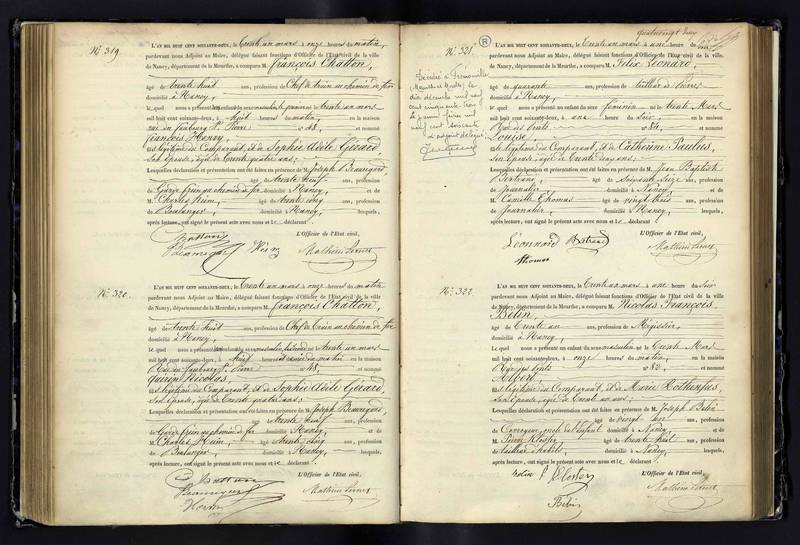 N° 319
L'AN MIL HUIT CENT SOIXANTE-DEUX, le Trente un mars à onze heures du matin,
pardevant nous Adjoint au Maire, délégué faisant fonctions d'Officier de l'Etat civil de la ville
de Nancy, département de la Meurthe, a comparu M. François Chatton,
âgé de trente huit ans, profession de Chef de train au chemin de fer
domicilié à Nancy,
lequel nous a présenté un enfant du sexe masculin le trente un mars
mil huit cent soixante-deux, à huit heures du matin, en la maison
rue du faubourg St. Pierre n° 48, et nommé
François Henry
fils légitime du Comparant, et de Sophie Adèle Gérard
son épouse, âgée de trente quatre ans;
Lesquelles déclaration et présentation ont été faites en présence de M. Joseph Beauregard,
âgé de trente neuf ans, profession
de Garde frein au chemin de fer domicilié à Nancy, et de
M. Charles Heim, âgé de trente cinq ans, profession
de Boulanger, domicilié à Nancy, lesquels,
après lecture, ont signé le présent acte avec nous et le déclarant
L'Officier de l'Etat civil,
N° 320.
L'AN MIL HUIT CENT SOIXANTE-DEUX, le Trente un mars à onze heures du matin
pardevant nous Adjoint au Maire, délégué faisant fonctions d'Officier de l'Etat civil de la ville
de Nancy, département de la Meurthe, a comparu M. François Chatton,
âgé de trente huit ans, profession de Chef de train au chemin de fer
domicilié à Nancy,
lequel nous a présenté un enfant du sexe masculin le trente un mars
mil huit cent soixante-deux, à huit heures du matin en la maison
Rue du faubourg St. Pierre n° 48, et nommé
Nicolas,
fils légitime du Comparant, et de Sophie Adèle Gérard,
son épouse, âgée de trente quatre ans;
Lesquelles déclaration et présentation ont été faites en présence de M. Joseph Beauregard,
âgé de trente neuf ans, profession
de Garde frein au chemin de fer domicilié à Nancy, et de
M. Charles Heim, âgé de trente cinq ans, profession
de Boulanger, domicilié à Nancy, lesquels,
après lecture, ont signé le présent acte avec nous et le déclarant
L'Officier de l'Etat civil,
N° 321.
R
L'AN MIL HUIT CENT SOIXANTE-DEUX, le Trente un mars à une heure du
pardevant nous Adjoint au Maire, délégué faisant fonctions d'Officier de l'Etat civil de la ville
de Nancy, département de la Meurthe, a comparu M. Félix Léonard,
âgé de quarante ans, profession de tailleur de pierres
domicilié à Nancy,
lequel nous a présenté un enfant du sexe féminin né le trente Mars
mil huit cent soixante-deux, à une heure du soir, en la maison
n° 84, et nommé
Louise,
fille légitime du Comparant, et de Catherine Paulus,
son épouse, âgée de trente cinq ans;
Lesquelles déclaration et présentation ont été faites en présence de M. Jean Baptiste
Bertrand, âgé de soixante seize ans, profession
de Journalier domicilié à Nancy et de
M. Camille Thomas âgé de vingt trois ans, profession
de Journalier, domicilié à Nancy, lesquels,
après lecture, ont signé le présent acte avec nous et le déclarant
L'Officier de l'Etat civil,
Léonnard Bertrand
Thomas
N° 322
L'AN MIL HUIT CENT SOIXANTE-DEUX, le Trente un mars à une heure du soir
pardevant nous Adjoint au Maire, délégué faisant fonctions d'Officier de l'Etat civil de la ville
de Nancy, département de la Meurthe, a comparu M. Nicolas François
Belin,
âgé de trente un ans, profession de Mégissier,
domicilié à Nancy,
lequel nous a présenté un enfant du sexe masculin né le trente Mars
mil huit cent soixante-deux, à onze heures du matin, en la maison
n° 82, et nommé
Albert,
fils légitime du Comparant, et de Marie
son épouse, âgée de trente un ans;
Lesquelles déclaration et présentation ont été faites en présence de M. Joseph Belin
ans, profession
de Corroyeur, oncle de l'enfant domicilié à Nancy et de
M. Pierre Kloster âgé de trente huit ans, profession
de tailleur d'habits, domicilié à Nancy, lesquels,
après lecture, ont signé le présent acte avec nous et le déclarant
L'Officier de l'Etat civil,
Belin Kloster
Belin